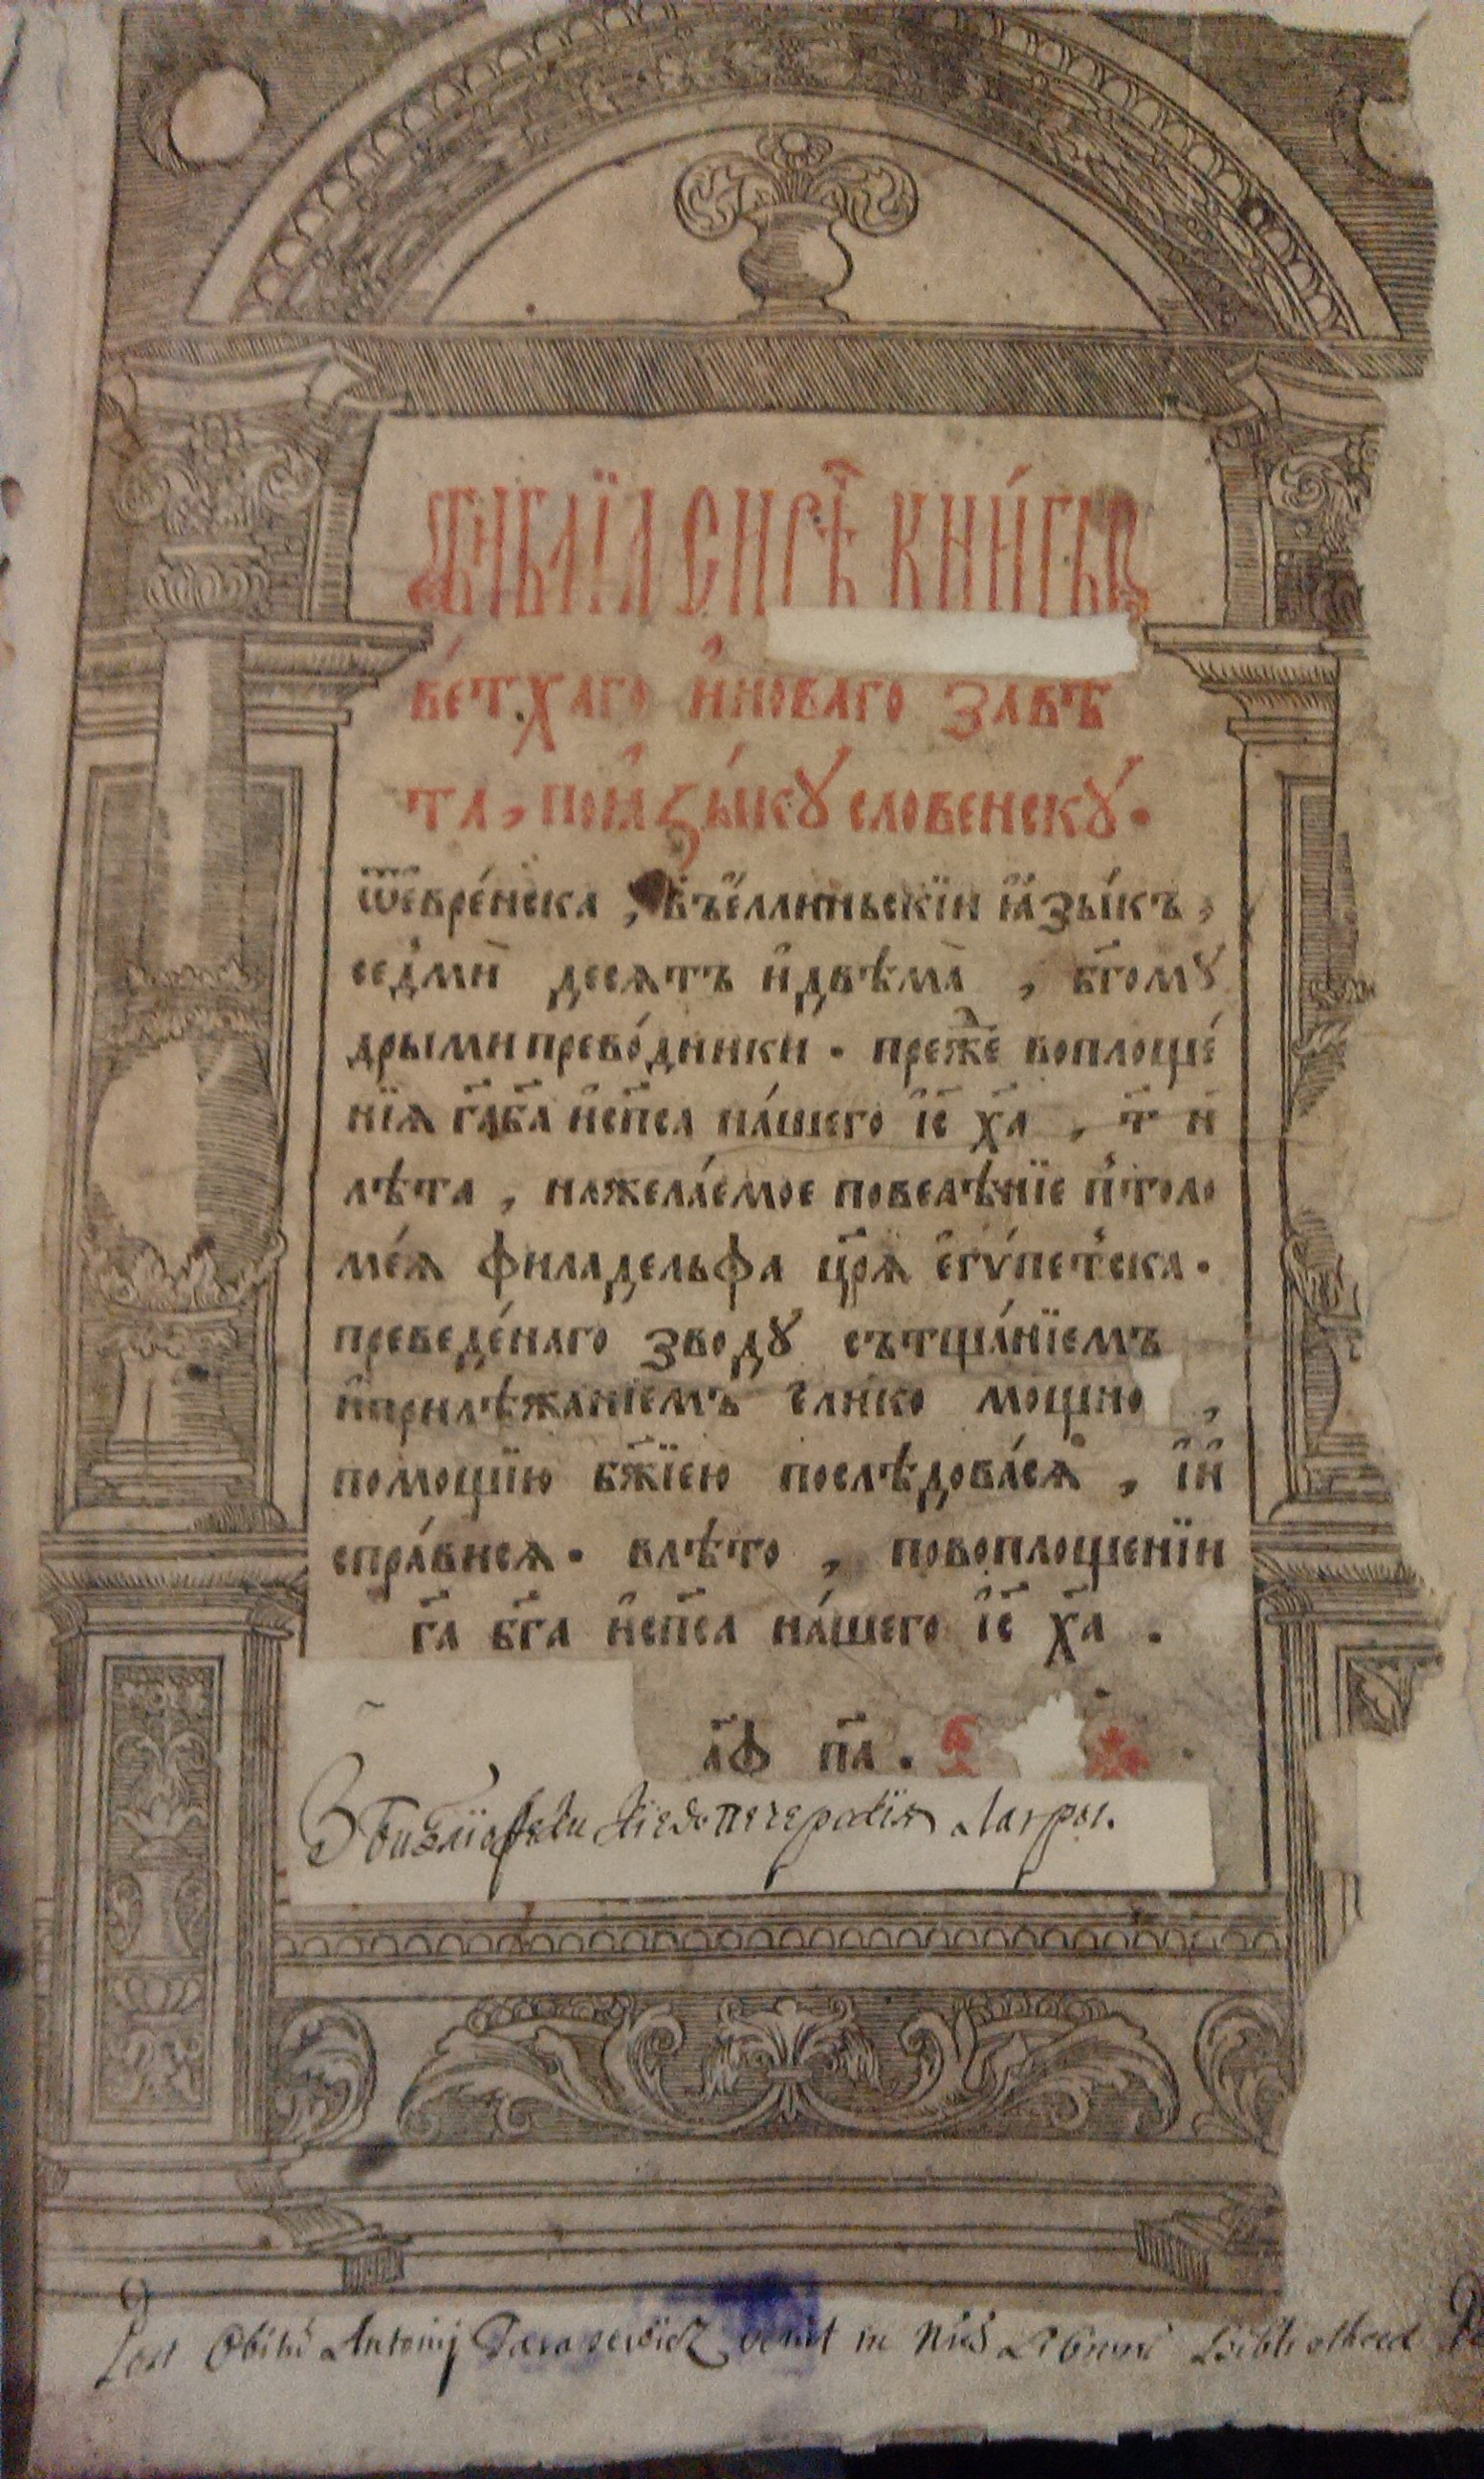 БИБЛІА СИРѢЧ КНИГЫ
ве́тхаго и҆новаго завѣ
та, поѧ҆зы́кꙋ словенскꙋ.
ѿе҆вре́нска, въе҆ллиньскїи ꙗ҆зы́къ,
седмⷤи десѧтъ и҆двѣмⷤа, бг҃омꙋ
дрыми прево́дники. преⷤже воплоще́
нїѧ гⷭ҇а бг҃а и҆сп҃са на́шего і҆с҃ хⷭ҇а, т҃ и҃
лѣта, нажела́емое повелѣ́нїе птоло
ме́ѧ филадельфа цр҃ѧ е҆гѵ́петска.
преведе́наго зводꙋ сътща́нїемъ
и҆прилѣжанїемъ е҆ли́ко мощно,
помощїю бж҃їею послѣдова́сѧ, і҆и҆
спра́внсѧ. влѣто, повоплощенїи
гⷭ҇а бг҃а и҆сп҃са на́шего і҆с҃ хⷭ҇а.
а҃ф п҃а.
З Библіѡѳеки Кіевопечерскія Лаѵры.
Post Obitu Antonij Tarasewicz venit in